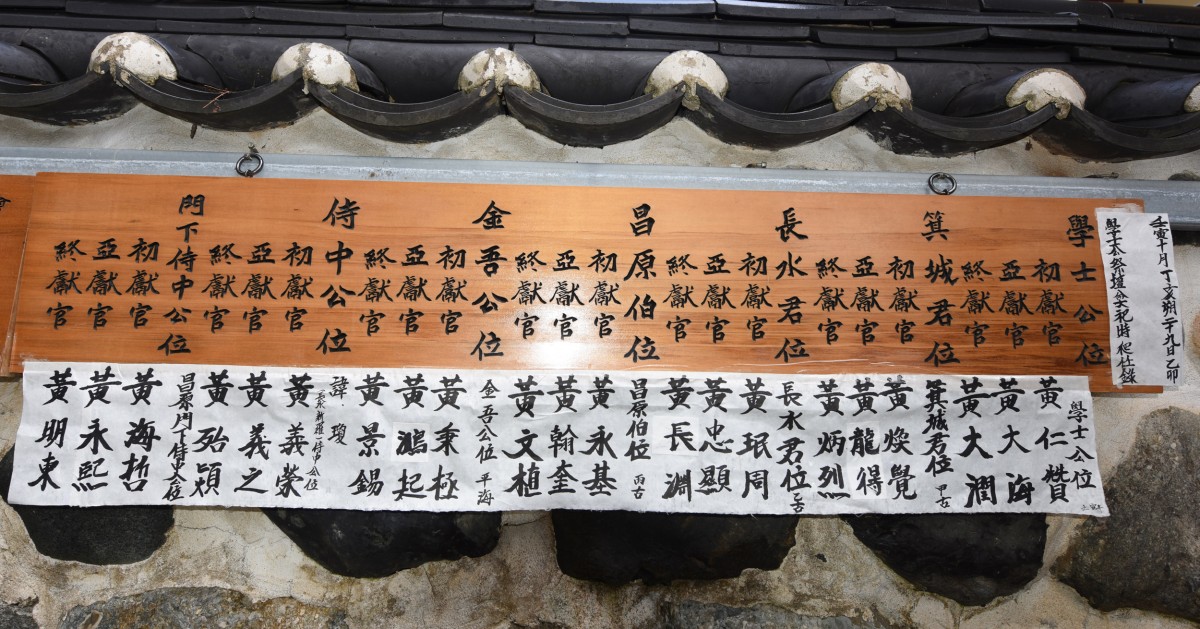 壬寅十月丁亥朔二十九日乙卯
學士公祭壇公大祝時爬任錄
學士公位
初獻官
亞獻官
終獻官
箕城君位
初獻官
亞獻官
終獻官
長水君位
初獻官
亞獻官
終獻官
昌原伯位
初獻官
亞獻官
終獻官
金吾公位
初獻官
亞獻官
終獻官
侍中公位
初獻官
亞獻官
終獻官
門下侍中公位
初獻官
亞獻官
終獻官
學士公位
黃仁贊
黃大海
黃大潤
箕城君位 甲古
黃煥覺
黃龍得
黃炳烈
長水君位 乙古
黃珉周
黃忠顯
黃長淵
昌原伯位 丙古
黃永基
黃翰奎
黃文植
金吾公位 平海
黃秉極
黃鴻起
黃景錫
諱 瓊
黃義榮
黃義之
黃殆潁
昌原門下侍中公位
黃海哲
黃永熙
黃明東